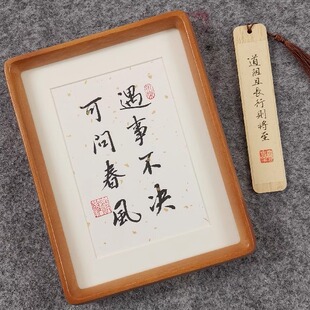 遇事不决
可问春风
道阻且长行则将至